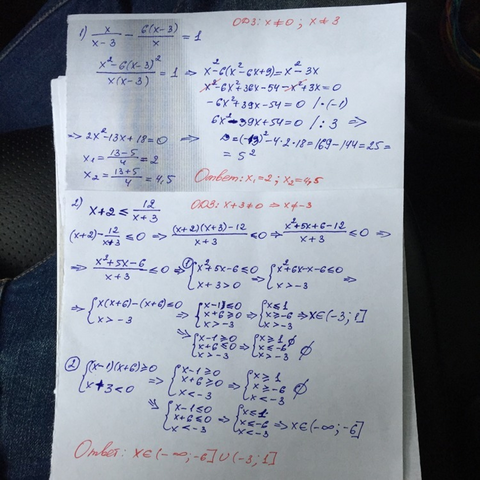 ОДЗ: x≠0; x≠3
1) x/(x-3) - 6(x-3)/x = 1
(x²-6(x-3)²)/(x(x-3)) = 1 ⇒ x²-6(x²-6x+9)=x²-3x
x²-6x²+36x-54-x²+3x=0
-6x²+39x-54=0 /·(-1)
6x²-39x+54=0 /:3 ⇒
⇒ 2x²-13x+18=0 ⇒ D=(-13)²-4·2·18=169-144=25=
x₁=(13-5)/4=2 = 5²
x₂=(13+5)/4=4,5 Ответ: x₁=2; x₂=4,5
2) x+2 ≤ 12/(x+3) ОДЗ: x+3≠0 ⇒ x≠-3
(x+2)-12/(x+3) ≤0 ⇒ ((x+2)(x+3)-12)/(x+3) ≤0 ⇒ (x²+5x+6-12)/(x+3) ≤0 ⇒
⇒ (x²+5x-6)/(x+3) ≤0 ⇒ ① {x²+5x-6≤0 x+3>0 ⇒ {x²+6x-x-6≤0 x>-3 ⇒
⇒ {x(x+6)-(x+6)≤0 x>-3 ⇒ {x-1≤0 x+6≥0 x>-3 ⇒ {x≤1 x≥-6 x>-3 ⇒ x∈(-3; 1]
⇒ {x-1≥0 x+6≤0 x>-3 ⇒ {x≥1 x≤-6 x>-3 ∅
② {(x-1)(x+6)≥0 x+3<0 ⇒ {x-1≥0 x+6≥0 x<-3 ⇒ {x≥1 x≥-6 x<-3 ∅
⇒ {x-1≤0 x+6≤0 x<-3 ⇒ {x≤1 x≤-6 x<-3 ⇒ x∈(-∞;-6]
Ответ: x∈(-∞;-6]∪(-3;1]